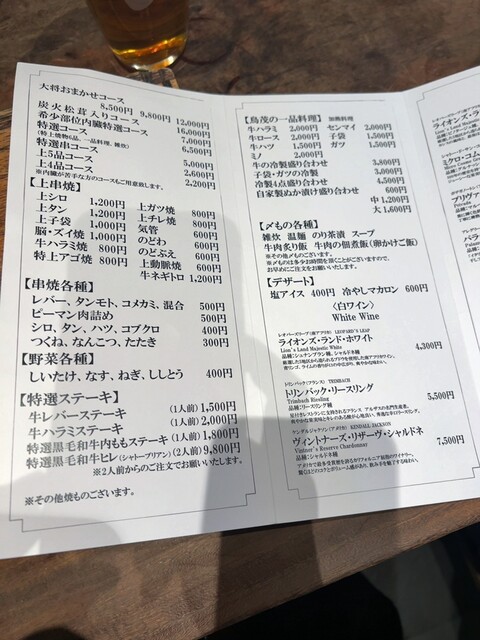 大将おまかせコース
8,500円 9,800円 12,000円
炭火松茸入りコース 16,000円
希少部位内臓特選コース 7,000円
特選コース 6,500円
(特上焼物6品、一品料理、雑炊)
特選串コース 5,000円
上5品コース 2,600円
上4品コース 2,200円
※内臓が苦手な方のコースもご用意致します。
【上串焼】
上シロ 1,200円 上ガツ焼 800円
上タン 1,200円 上チレ焼 800円
上子袋 1,000円 気管 600円
脳・ズイ焼 1,000円 のどわ 600円
牛ハラミ焼 800円 のどぶえ 600円
特上アゴ焼 800円 上動脈焼 600円
牛ネギトロ 1,200円
【串焼各種】
レバー、タンモト、コメカミ、混合 500円
ピーマン肉詰め 500円
シロ、タン、ハツ、コブクロ 400円
つくね、なんこつ、たたき 300円
【野菜各種】
しいたけ、なす、ねぎ、ししとう 400円
【特選ステーキ】
牛レバーステーキ (1人前) 1,500円
牛ハラミステーキ (1人前) 2,000円
特選黒毛和牛内ももステーキ (1人前) 1,800円
特選黒毛和牛ヒレ(シャトーブリアン) (2人前) 9,800円
※2人前からのご注文でお願いいたします。
※その他焼ものございます。
【鳥茂の一品料理】 加熱料理
牛ハラミ 2,000円 センマイ 2,000円
牛ロース 2,000円 子袋 1,500円
牛ハツ 1,500円 ガツ 1,500円
ミノ 2,000円
牛の冷製盛り合わせ 3,800円
子袋・ガツの冷製 3,000円
冷製4点盛り合わせ 4,500円
自家製ぬか漬け盛り合わせ 600円
中 1,200円
大 1,600円
【〆もの各種】
雑炊 温麺 のり茶漬 スープ
牛肉炙り飯 牛肉の佃煮飯(卵かけご飯)
※その他〆もございます。
※〆ものは多少お時間を頂くことがございますので、
お早めにご注文をお願いいたします。
【デザート】
塩アイス 400円 冷やしマカロン 600円
〈白ワイン〉
White Wine
レオパーズリーフ(南アフリカ) LEOPARD'S LEAF
ライオンズ・ランド・ホワイト 4,300円
Lion's Land Majestic White
品種:シュナンブラン種、シャルドネ種
トリンバック(フランス) TRIMBACH
トリンバック・リースリング 5,500円
Trimbach Riesling
品種:リースリング種
ケンダルジャクソン(アメリカ) KENDALL JACKSON
ヴィントナーズ・リザーヴ・シャルドネ 7,500円
Vintner's Reserve Chardonnay
品種:シャルドネ種
アメリカで最も受賞歴を誇るカリフォルニア屈指のワイナリー。
ライオンズ
ミクロ・コム
プリヴァ
バラ